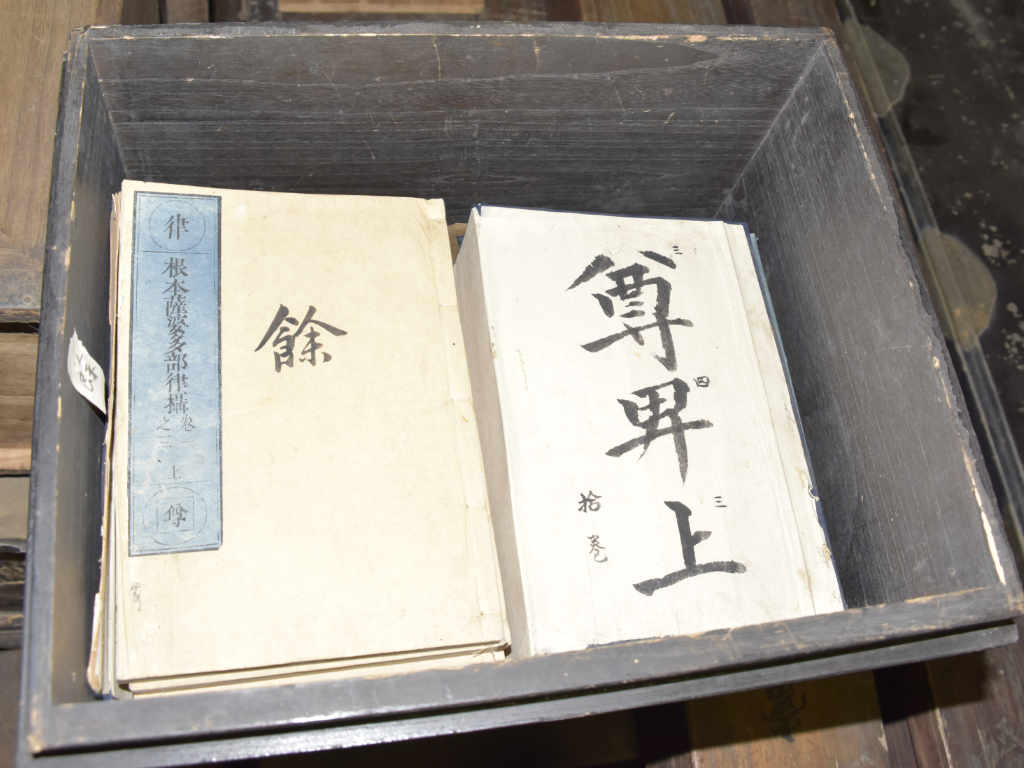 律
根本薩婆多部律攝
卷之
上
餘
尊 三
卑 四
上 三
拾卷